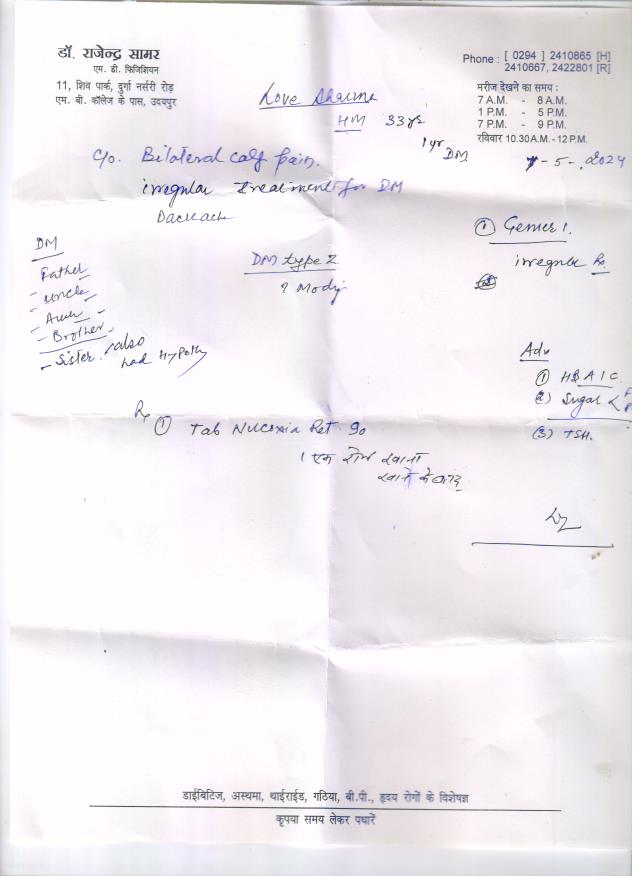 डॉ. राजेन्द्र सामर
एम. डी. फिजिशियन
11, शिव पार्क, दुर्गा नर्सरी रोड़
एम. बी. कॉलेज के पास, उदयपुर
Phone : [ 0294 ] 2410865 [H]
2410667, 2422801 [R]
मरीज देखने का समय :
7 A.M. - 8 A.M.
1 P.M. - 5 P.M.
7 P.M. - 9 P.M.
रविवार 10.30 A.M. - 12 P.M.
Love Sharma
HM 33 yrs
1 yr DM
7-5-2024
C/o. Bilateral calf pain.
irregular treatment for DM
Backache
① Gemer 1.
irregular Rx.
DM
Father
- uncle
- Aunt -
- Brother,
- Sister. also
had Hypoth
DM type 2
? Mody
Adv
① HBA1C.
(2) Sugar < F
P
(3) TSH.
Rx ① Tab Nucoxia Ret 90
1 एक रोज खाना
खाने के बाद
डाईबिटिज, अस्थमा, थाईराईड, गठिया, बी.पी., हृदय रोगों के विशेषज्ञ
कृपया समय लेकर पधारें